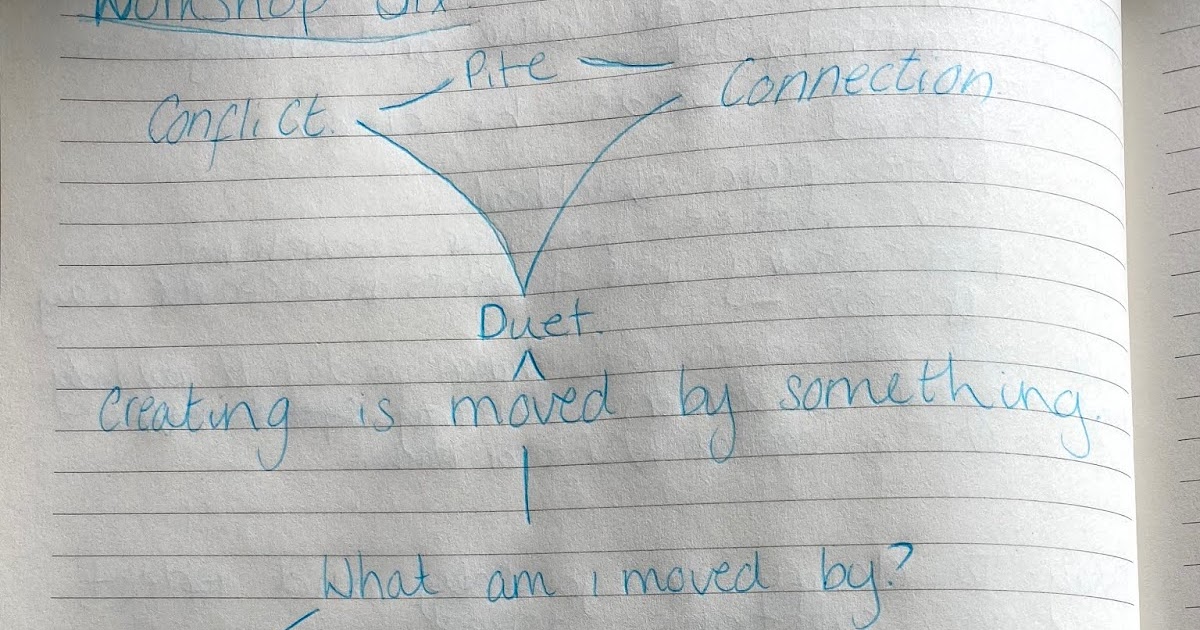 Workshop Six
Pite
Conflict. Connection.
Duet.
Creating is moved by something.
What am i moved by?